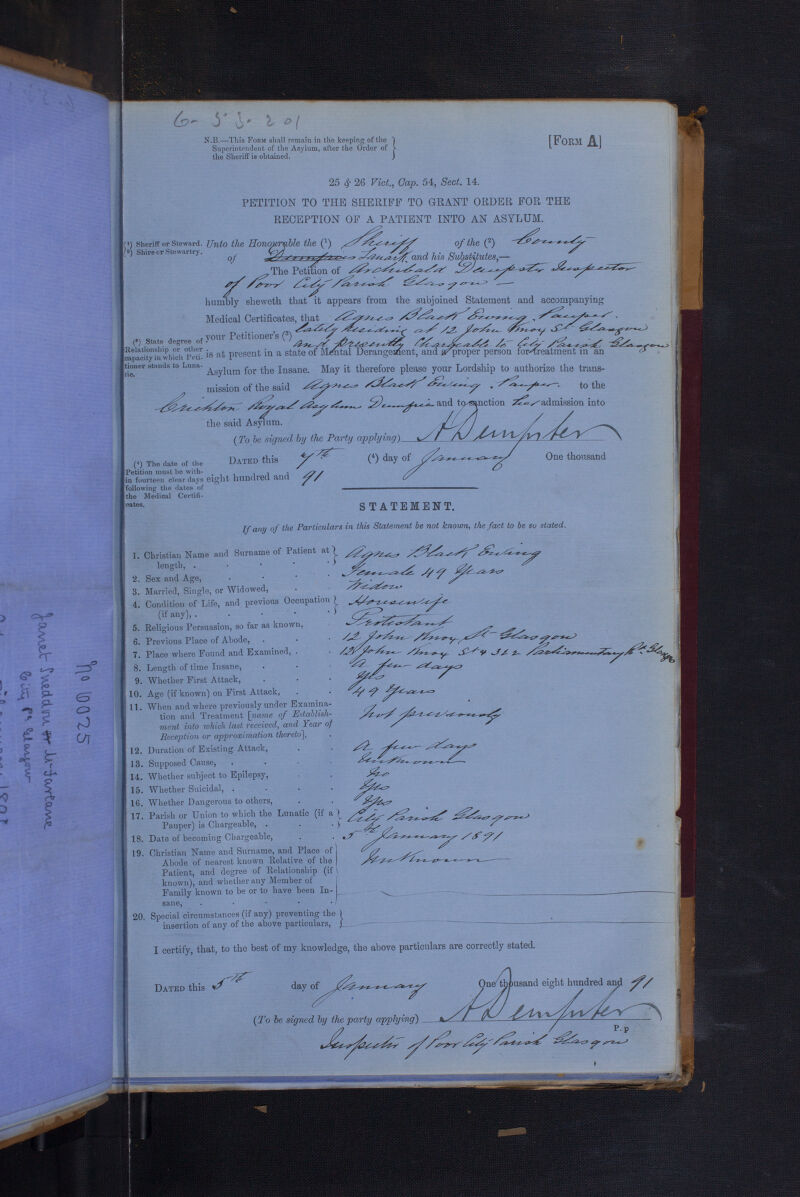 6-5-5-201
N.B.—This Form shall remain in the keeping of the
Superintendent of the Asylum, after the Order of
the Sheriff is obtained.
[Form A]
25 & 26 Vict., Cap. 54, Sect. 14.
PETITION TO THE SHERIFF TO GRANT ORDER FOR THE
RECEPTION OF A PATIENT INTO AN ASYLUM.
(1) Sheriff or Steward.
(2) Shire or Stewartry.
Unto the Honourable the (1) Sheriff of the (2) County
of Dumfries Lanark, and his Substitutes,—
The Petition of Archibald Dempster Inspector
of Poor City Parish Glasgow —
humbly sheweth that it appears from the subjoined Statement and accompanying
Medical Certificates, that Agnes Black Ewing, Pauper.
(3) State degree of
Relationship or other
capacity in which Peti-
tioner stands to Luna-
tic.
your Petitioner's (3) lately residing at 12 John Knox St Glasgow
and presently chargeable to City Parish Glasgow
is at present in a state of Mental Derangement, and a proper person for treatment in an
Asylum for the Insane. May it therefore please your Lordship to authorize the trans-
mission of the said Agnes Black Ewing, Pauper. to the
Crichton Royal Asylum Dumfries and to sanction her admission into
the said Asylum.
(To be signed by the Party applying) A Dempster
(4) The date of the
Petition must be with-
in fourteen clear days
following the dates of
the Medical Certifi-
cates.
Dated this 7th (4) day of January One thousand
eight hundred and 91
STATEMENT.
If any of the Particulars in this Statement be not known, the fact to be so stated.
1. Christian Name and Surname of Patient at
length, . Agnes Black Ewing
2. Sex and Age, Female 49 Years
3. Married, Single, or Widowed, Widow
4. Condition of Life, and previous Occupation
(if any), . Housewife
5. Religious Persuasion, so far as known, Protestant
6. Previous Place of Abode, 12 John Knox St Glasgow
7. Place where Found and Examined, 12 John Knox St & 322 Parliamentary Rd. Glasgow
8. Length of time Insane, A few days
9. Whether First Attack, Yes
10. Age (if known) on First Attack, 49 Years
11. When and where previously under Examina-
tion and Treatment [name of Establish-
ment into which last received, and Year of
Reception or approximation thereto], Not previously
12. Duration of Existing Attack, A few days
13. Supposed Cause, Unknown
14. Whether subject to Epilepsy, No
15. Whether Suicidal, Yes
16. Whether Dangerous to others, Yes
17. Parish or Union to which the Lunatic (if a
Pauper) is Chargeable, City Parish Glasgow
18. Date of becoming Chargeable, 5th January 1891
19. Christian Name and Surname, and Place of
Abode of nearest known Relative of the
Patient, and degree of Relationship (if
known), and whether any Member of
Family known to be or to have been In-
sane, Unknown
20. Special circumstances (if any) preventing the
insertion of any of the above particulars,
I certify, that, to the best of my knowledge, the above particulars are correctly stated.
Dated this 5th day of January One thousand eight hundred and 91
(To be signed by the party applying) A Dempster
P.p
Inspector of Poor City Parish Glasgow
No 10025
Janet Sneddon or McFarlane
City Ph Glasgow